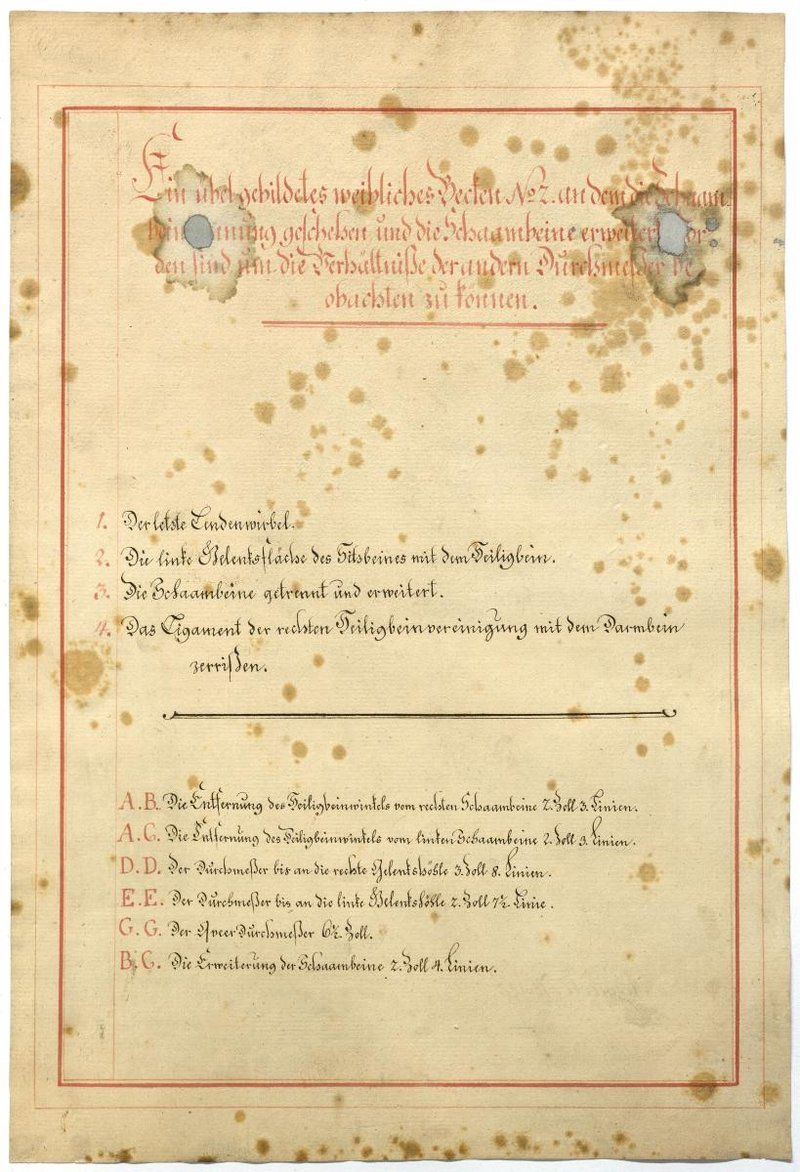 Ein übel gebildetes weibliches Becken No 2. an dem die Schaam-
bein nung geschehen und die Schaambeine erweitert or
den sind um die Verhältniße der andern Durchmeßer be
obachten zu können.
1. Der letste Lendenwirbel.
2. Die linke Gelenksfläche des Sitsbeines mit dem Heiligbein.
3. Die Schaambeine getrennt und erweitert.
4. Das Ligament der rechten Heiligbeinvereinigung mit dem Darmbein
zerrißen.
A. B. Die Entfernung des Heiligbeinwinkels vom rechten Schaambeine 2. Zoll 3. Linien.
A. C. Die Entfernung des Heiligbeinwinkels vom linken Schaambeine 2. Zoll 3. Linien.
D. D. Der Durchmeßer bis an die rechte Gelenkshöhle 3. Zoll 8. Linien.
E. E. Der Durchmeßer bis an die linke Gelenkshöhle 2. Zoll 7½ Linie.
G. G. Der Qveer Durchmeßer 6½ Zoll.
B. C. Die Erweiterung der Schaambeine 2. Zoll 4. Linien.